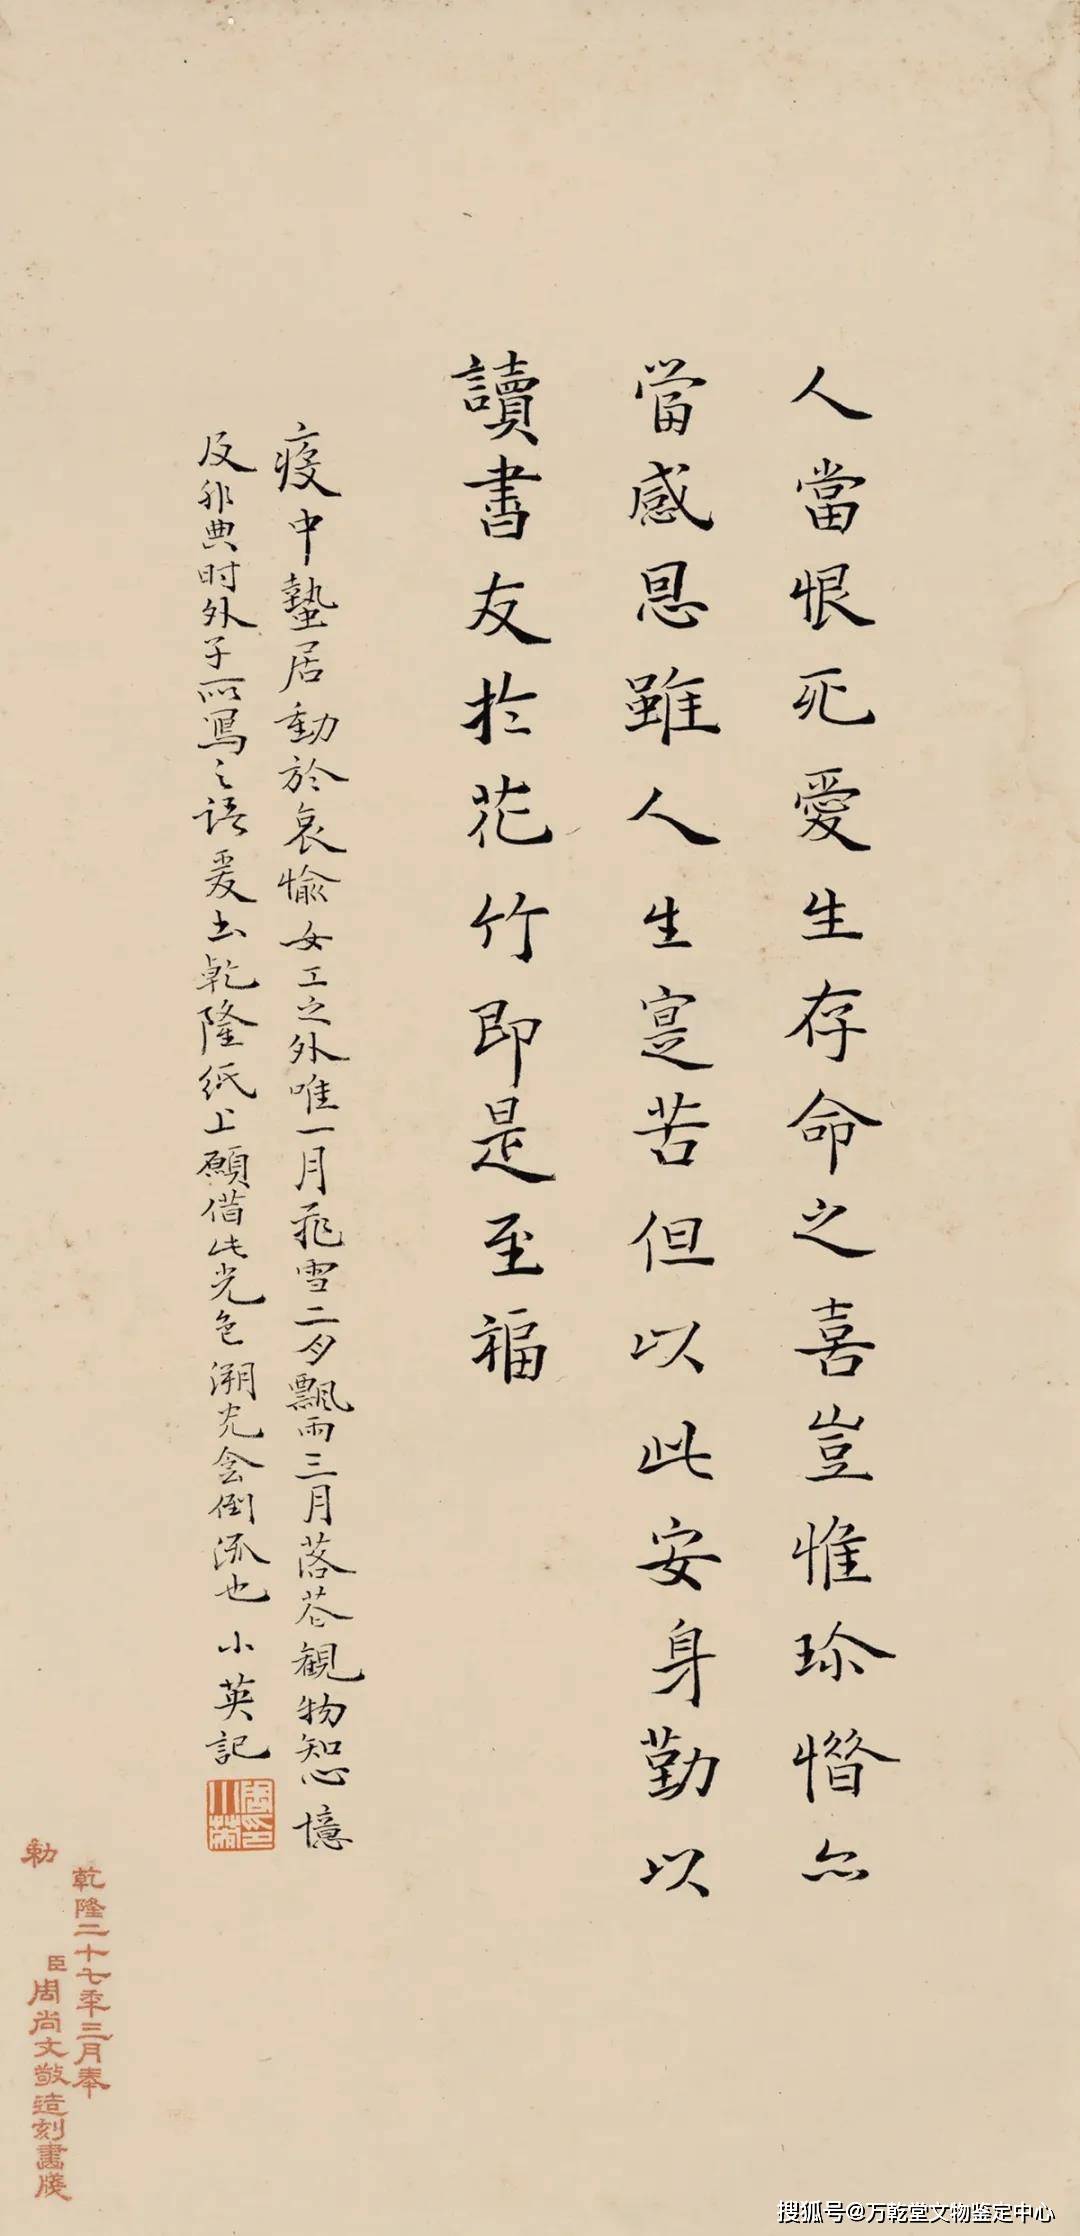 人當恨死愛生存命之喜豈惟珎惜亦
當感恩雖人生寔苦但以此安身勤以
讀書友扵花竹即是至福
疫中蟄居動於哀愉女工之外唯一月飛雪二夕飄雨三月落花觀物怨心憶
及非典时外子所寫之語爰书乾隆纸上願借此光色溯光会倒流也 小英記
周小英印
乾隆二十七年三月奉
勅
臣周尚文敬造刻畫牋
搜狐号@万乾堂文物鉴定中心